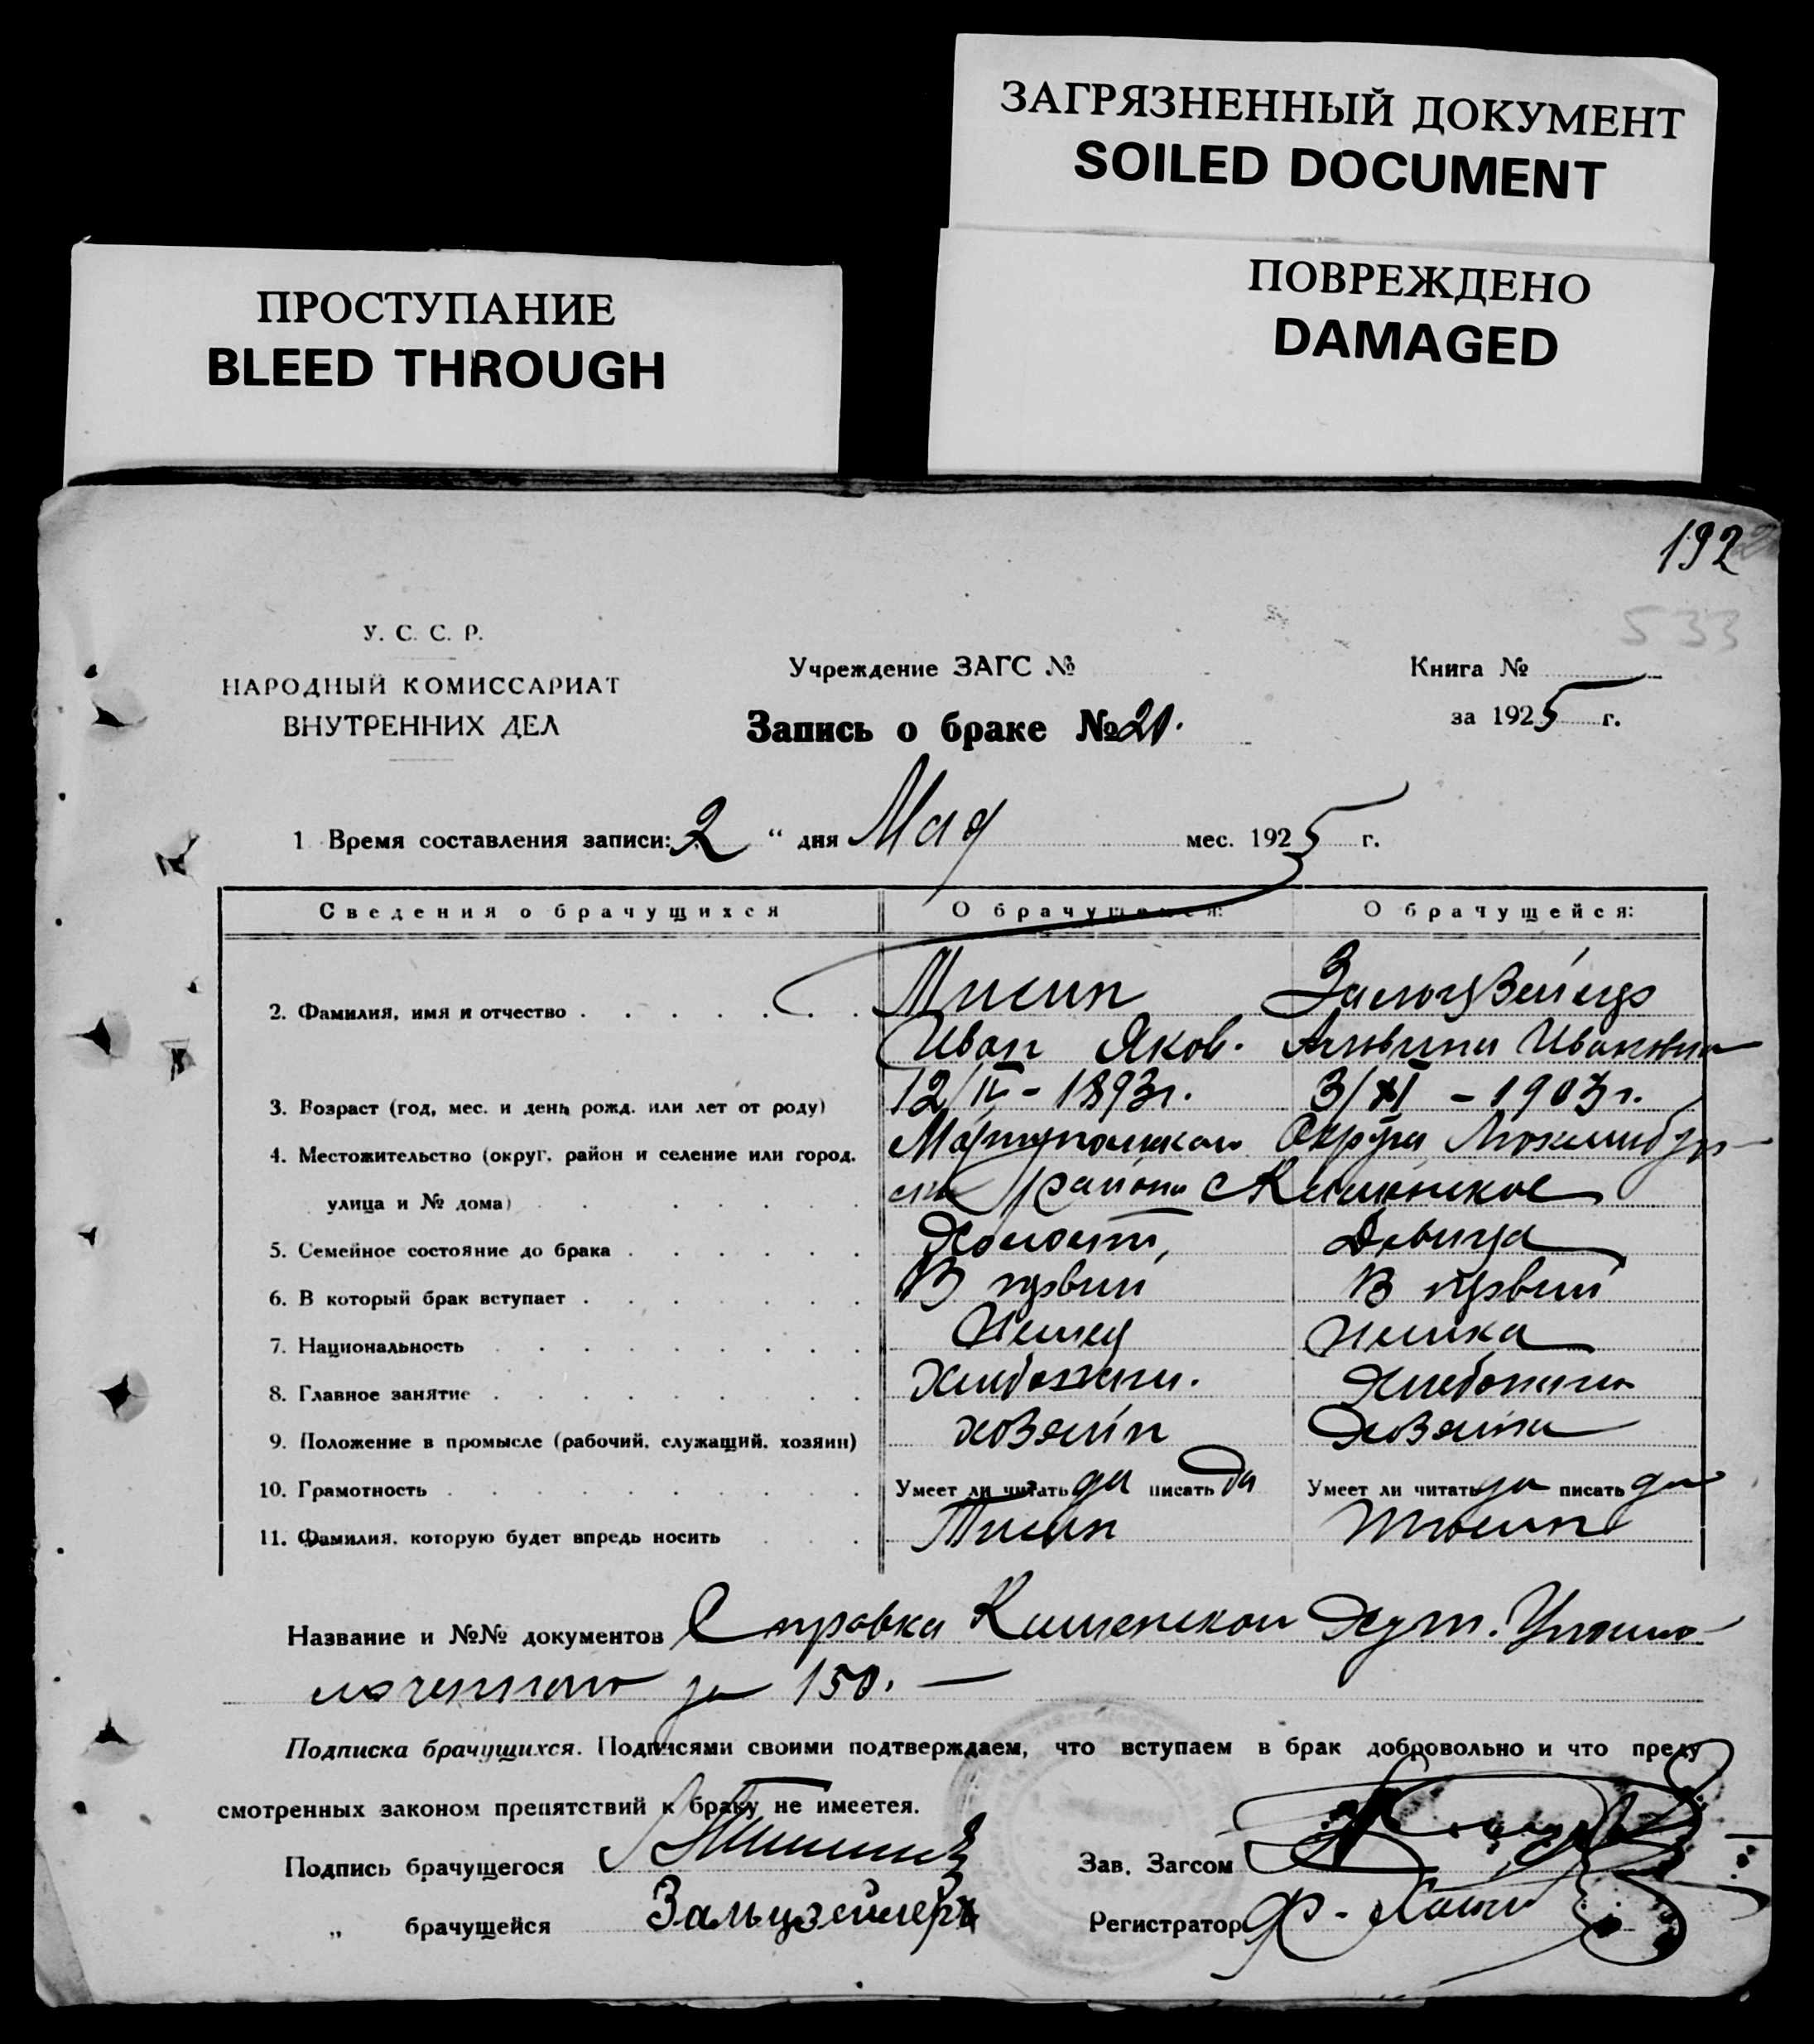 ЗАГРЯЗНЕННЫЙ ДОКУМЕНТ
SOILED DOCUMENT
ПОВРЕЖДЕНО
DAMAGED
ПРОСТУПАНИЕ
BLEED THROUGH
192
533
У. С. С. Р.
НАРОДНЫЙ КОМИССАРИАТ
ВНУТРЕННИХ ДЕЛ
Учреждение ЗАГС №
Запись о браке № 21.
Книга №
за 1925 г.
1 Время составления записи: 2 " дня Мая мес. 1925 г.
Сведения о брачущихся О брачущемся: О брачущейся:
2. Фамилия, имя и отчество
Иван Яков. Альвина Ивановна
3. Возраст (год, мес. и день рожд. или лет от роду) 12/IV - 1893 г. 3/XI - 1903 г.
4. Местожительство (округ, район и селение или город, Мариупольского Округа Люксембург-
улица и № дома) ск. района с.
5. Семейное состояние до брака Холост, Девица
6. В который брак вступает В первый В первый
7. Национальность Немец Немка
8. Главное занятие
9. Положение в промысле (рабочий, служащий, хозяин) хозяин Хозяйка
10. Грамотность Умеет ли читать да писать да Умеет ли читать да писать да
11. Фамилия, которую будет впредь носить Тисин
Название и №№ документов Справка Хут. Уполно-
моченного за 150. —
Подписка брачущихся. Подписями своими подтверждаем, что вступаем в брак добровольно и что преду
смотренных законом препятствий к браку не имеется.
Подпись брачущегося
Зав. Загсом
„ брачущейся
Регистратор